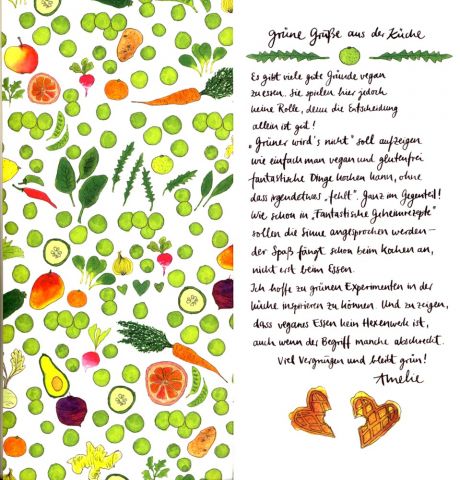 grüne Grüße aus der Küche
Es gibt viele gute Gründe vegan
zu essen. Sie spielen hier jedoch
keine Rolle, denn die Entscheidung
allein ist gut!
„Grüner wird's nicht" soll aufzeigen
wie einfach man vegan und glutenfrei
fantastische Dinge kochen kann, ohne
dass irgendetwas „fehlt". Ganz im Gegenteil!
Wie schon in „Fantastische Geheimrezepte"
sollen die Sinne angesprochen werden –
der Spaß fängt schon beim Kochen an,
nicht erst beim Essen.
Ich hoffe zu grünen Experimenten in der
Küche inspirieren zu können. Und zu zeigen,
dass veganes Essen kein Hexenwerk ist,
auch wenn der Begriff manche abschreckt.
Viel Vergnügen und bleibt grün!
Amelie